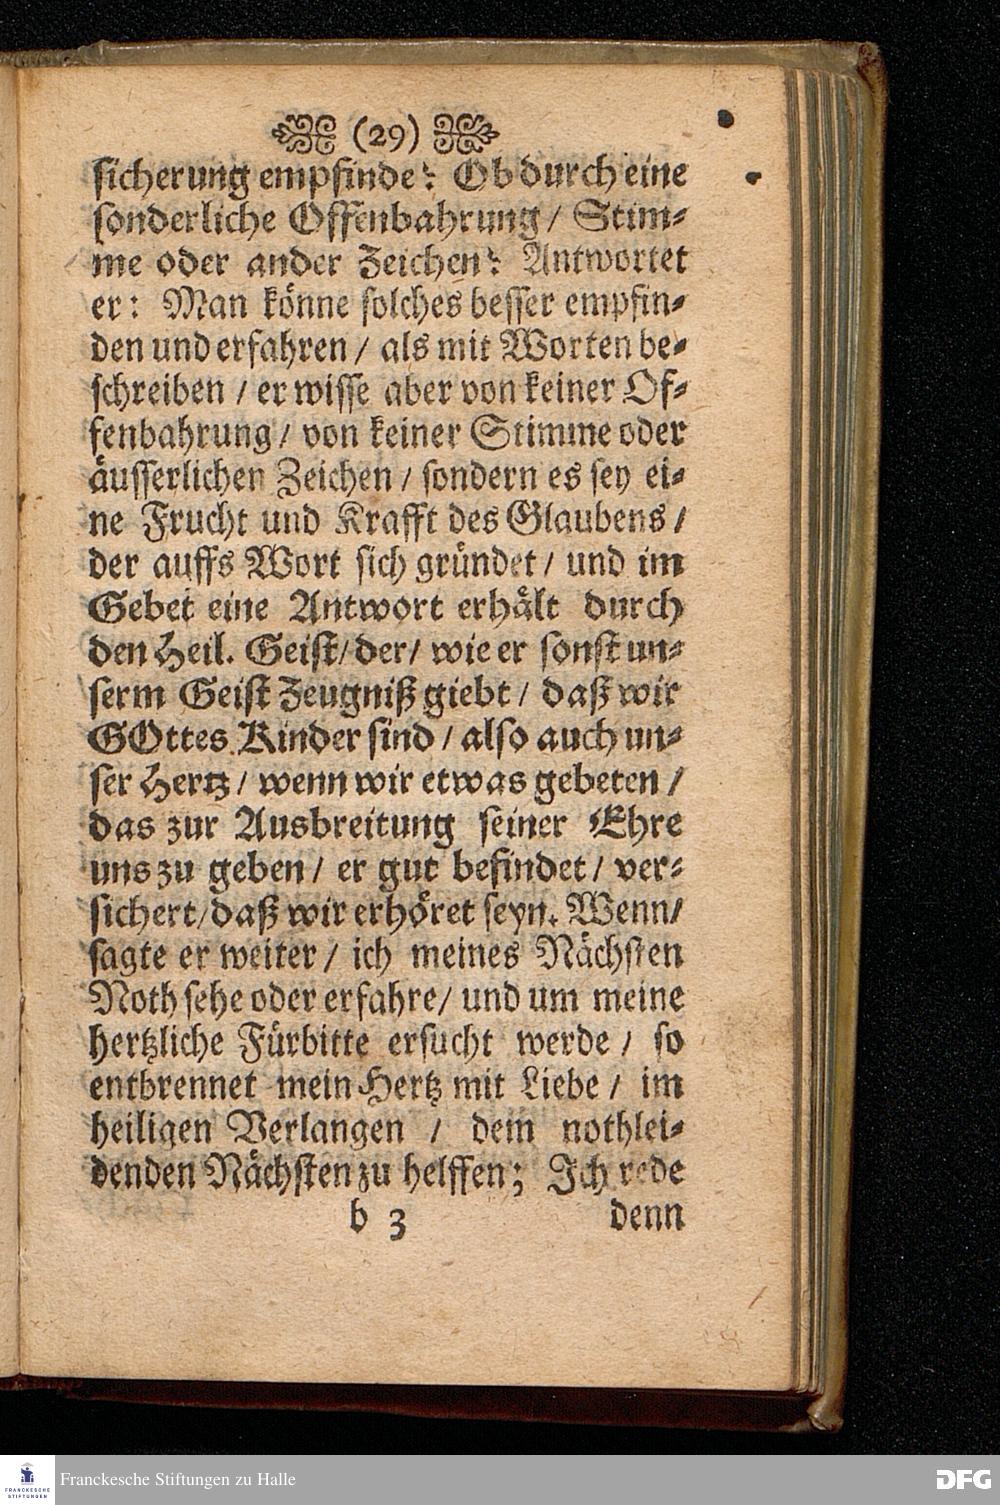 (29)
sicherung empfinde? Ob durch eine
sonderliche Offenbahrung / Stim-
me oder ander Zeichen? Antwortet
er: Man könne solches besser empfin-
den und erfahren / als mit Worten be-
schreiben / er wisse aber von keiner Of-
fenbahrung / von keiner Stimme oder
äusserlichen Zeichen / sondern es sey ei-
ne Frucht und Krafft des Glaubens /
der auffs Wort sich gründet / und im
Gebet eine Antwort erhält durch
den Heil. Geist / der / wie er sonst un-
serm Geist Zeugniß giebt / daß wir
GOttes Kinder sind / also auch un-
ser Hertz / wenn wir etwas gebeten /
das zur Ausbreitung seiner Ehre
uns zu geben / er gut befindet / ver-
sichert / daß wir erhöret seyn. Wenn /
sagte er weiter / ich meines Nächsten
Noth sehe oder erfahre / und um meine
hertzliche Fürbitte ersucht werde / so
entbrennet mein Hertz mit Liebe / im
heiligen Verlangen / dem nothlei-
denden Nächsten zu helffen; Ich rede
b 3 denn
FRANCKESCHE
STIFTUNGEN
Franckesche Stiftungen zu Halle
DFG